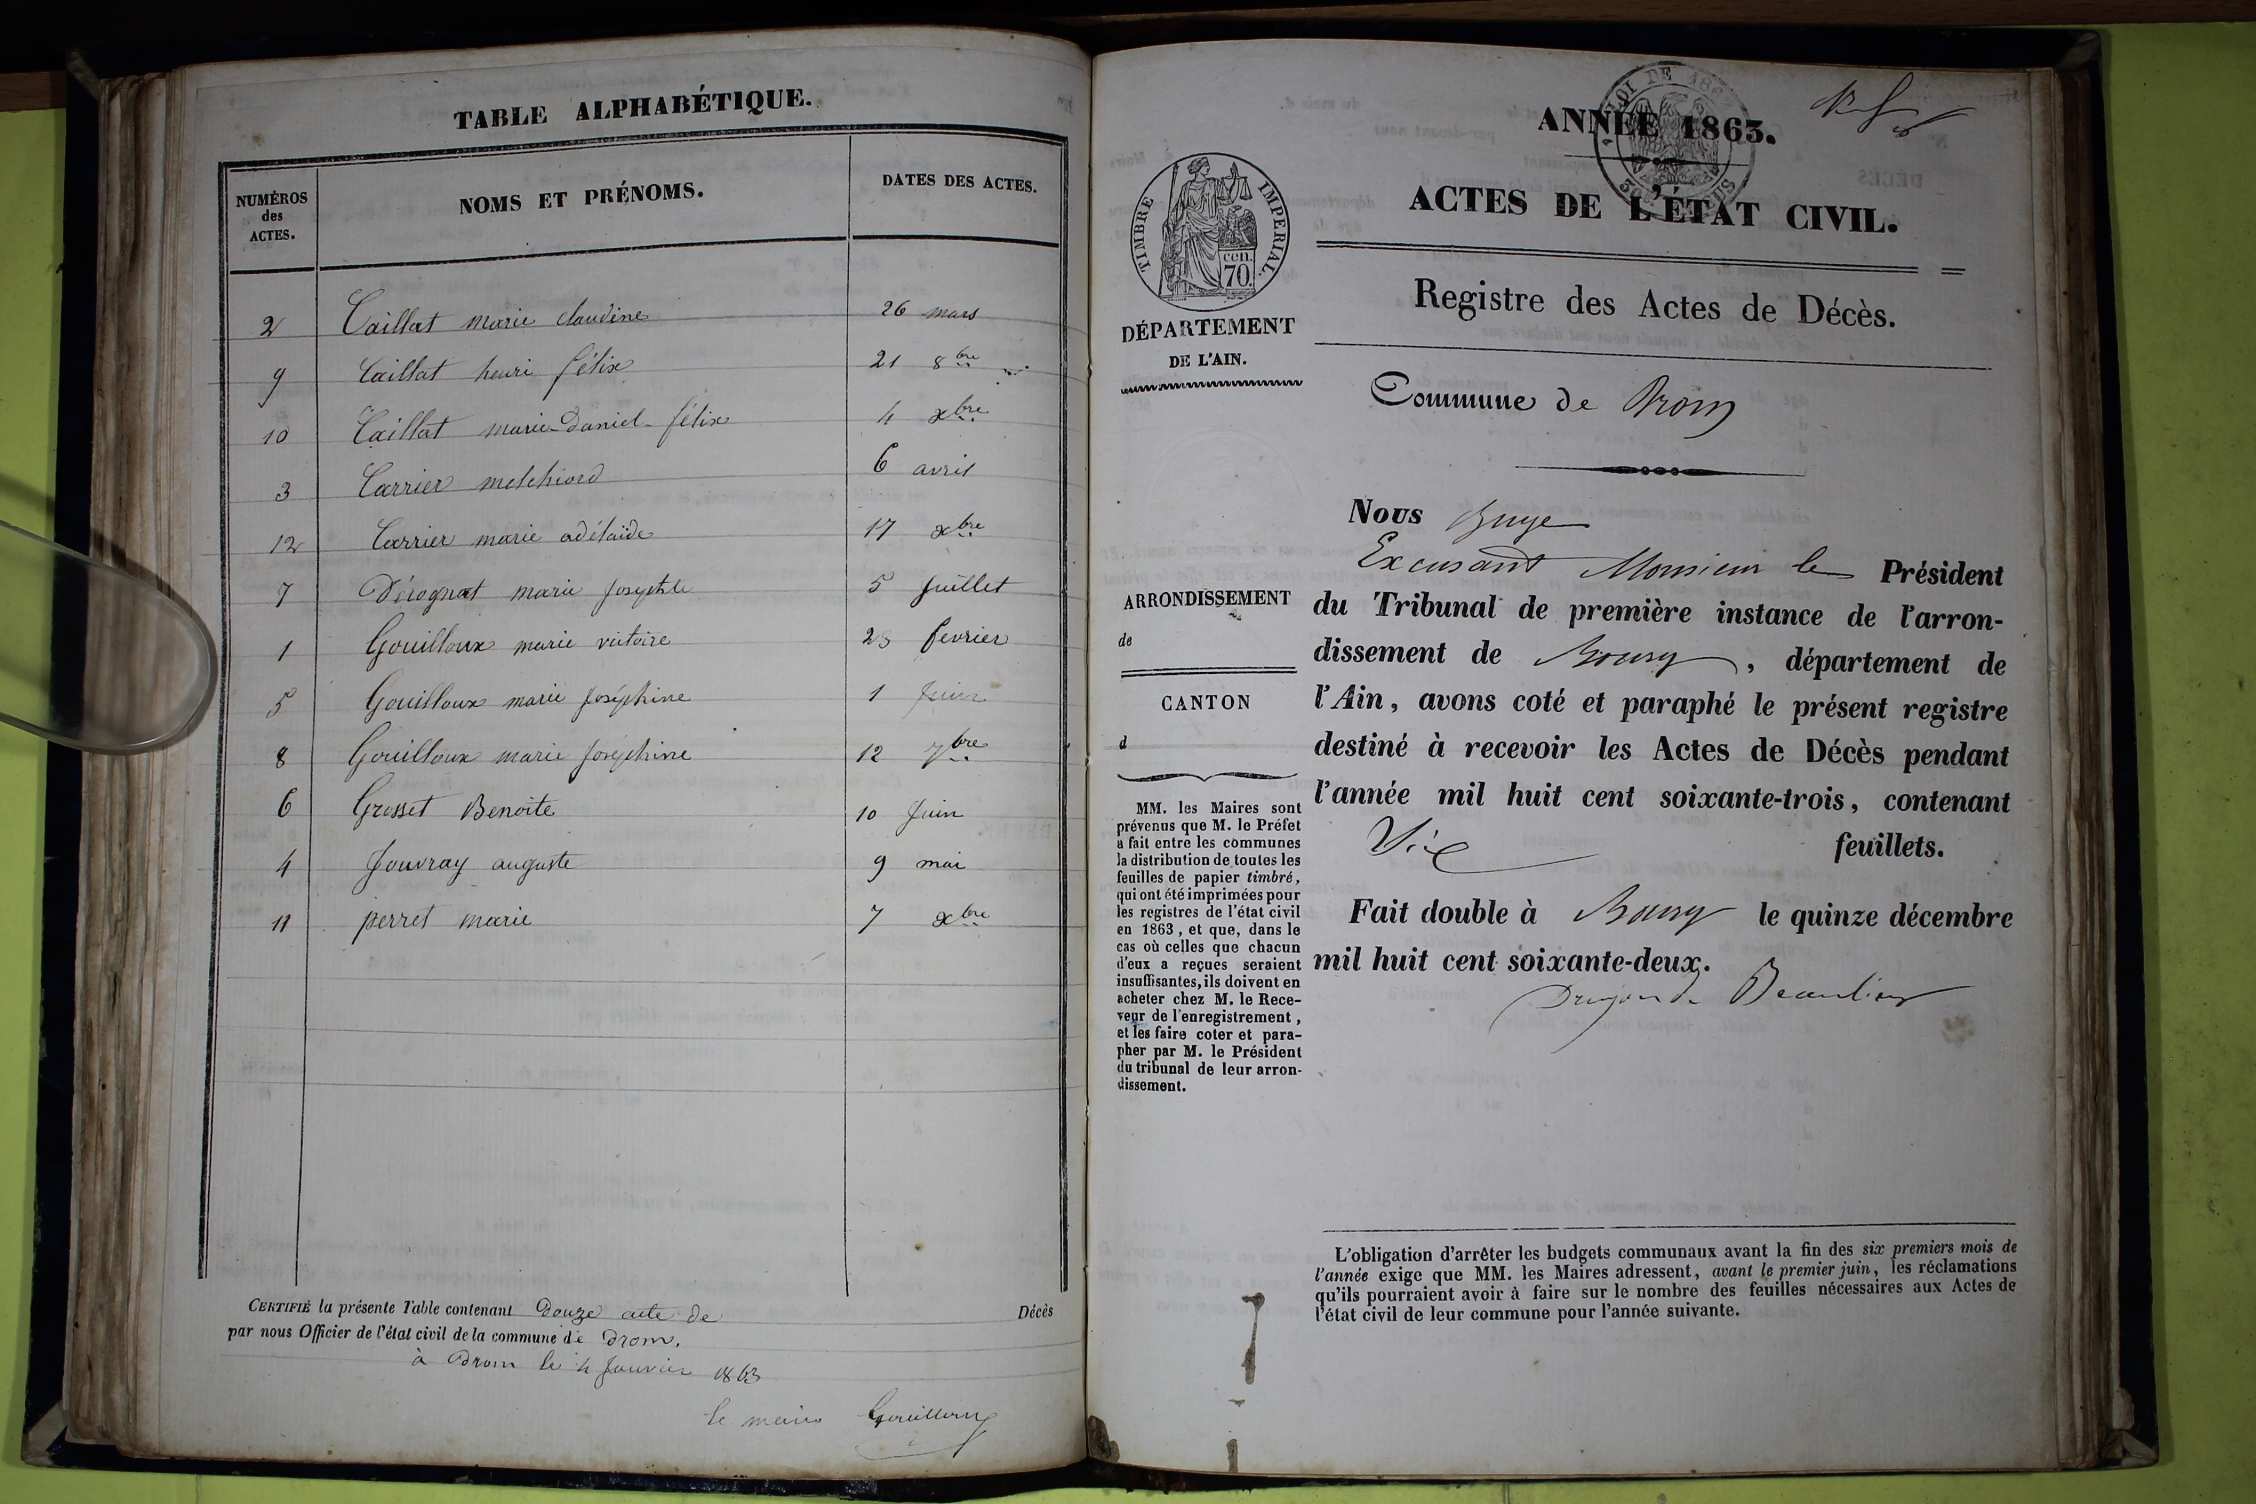 TABLE ALPHABÉTIQUE.
NUMÉROS des ACTES.
NOMS ET PRÉNOMS.
DATES DES ACTES.
2 Caillat marie claudine 26 mars
9 Caillat henri félix 21 8bre
10 Caillat marie-Daniel-félix 4 xbre
3 Carrier melchiord 6 avril
12 Carrier marie adélaïde 17 xbre
7 marie Josephte 5 Juillet
1 Gouilloux marie victoire 23 fevrier
5 Gouilloux marie Joséphine 1 Juin
8 Gouilloux marie Joséphine 12 7bre
6 Grosset Benoite 10 Juin
4 Jouvray auguste 9 mai
11 perret marie 7 xbre
CERTIFIÉ la présente Table contenant Douze acte de Décès
par nous Officier de l'état civil de la commune de Drom.
à Drom le 4 Janvier 1863
le maire Gouilloux
ANNÉE 1863.
LOI DE
TIMBRE IMPERIAL
cen.
70.
ACTES DE L'ÉTAT CIVIL.
Registre des Actes de Décès.
DÉPARTEMENT
DE L'AIN.
Commune de Drom
Nous Juge
Excusant Monsieur le Président
du Tribunal de première instance de l'arron-
dissement de Bourg, département de
l'Ain, avons coté et paraphé le présent registre
destiné à recevoir les Actes de Décès pendant
l'année mil huit cent soixante-trois, contenant
Six feuillets.
Fait double à Bourg le quinze décembre
mil huit cent soixante-deux.
Beaulieu
ARRONDISSEMENT
de
CANTON
d
MM. les Maires sont
prévenus que M. le Préfet
a fait entre les communes
la distribution de toutes les
feuilles de papier timbré,
qui ont été imprimées pour
les registres de l'état civil
en 1863, et que, dans le
cas où celles que chacun
d'eux a reçues seraient
insuffisantes, ils doivent en
acheter chez M. le Rece-
veur de l'enregistrement,
et les faire coter et para-
pher par M. le Président
du tribunal de leur arron-
dissement.
L'obligation d'arrêter les budgets communaux avant la fin des six premiers mois de
l'année exige que MM. les Maires adressent, avant le premier juin, les réclamations
qu'ils pourraient avoir à faire sur le nombre des feuilles nécessaires aux Actes de
l'état civil de leur commune pour l'année suivante.